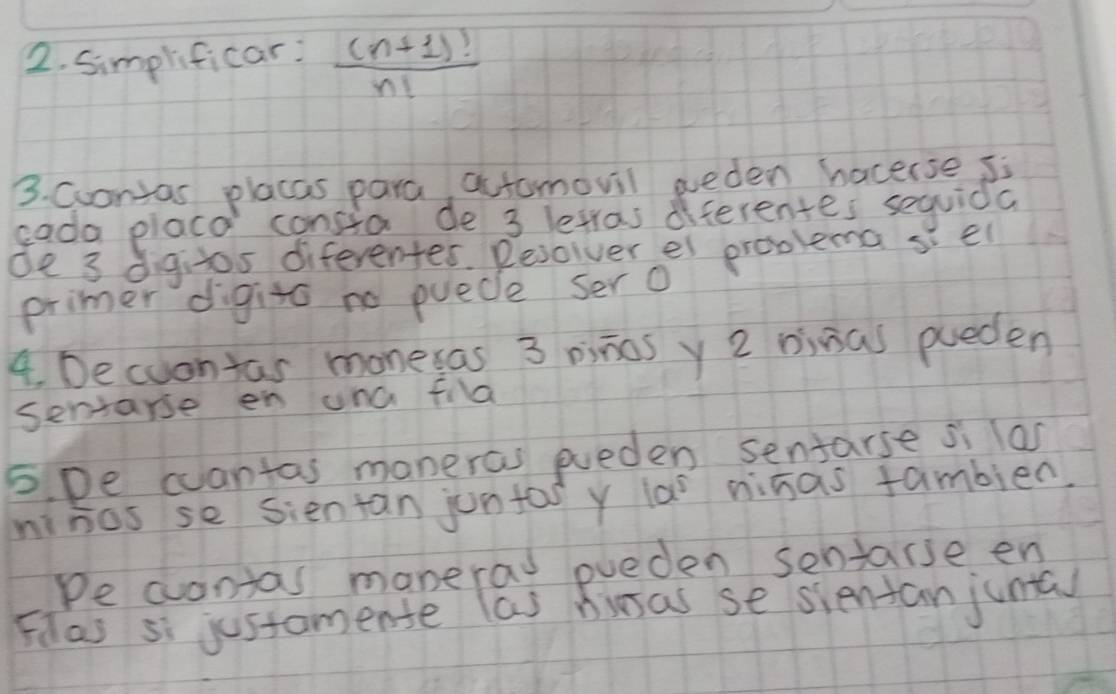 2. Simplificar: (n+1)!
n!
3. Cuontas placas para automovil pueden hacerse si
cada placa consta de 3 letras diferentes seguida
de 3 digitos diferentes. Resolver el problema si el
primer digito no puede ser 0
4. De cuontas moneras 3 niños y 2 niñas pueden
sentarse en una fila
5. De cuantas maneras pueden sentarse si los
niños se sientan juntos y las niñas tambien.
De cuontas maneras pueden sentarse en
filas si justamente las niñas se sientan juntas